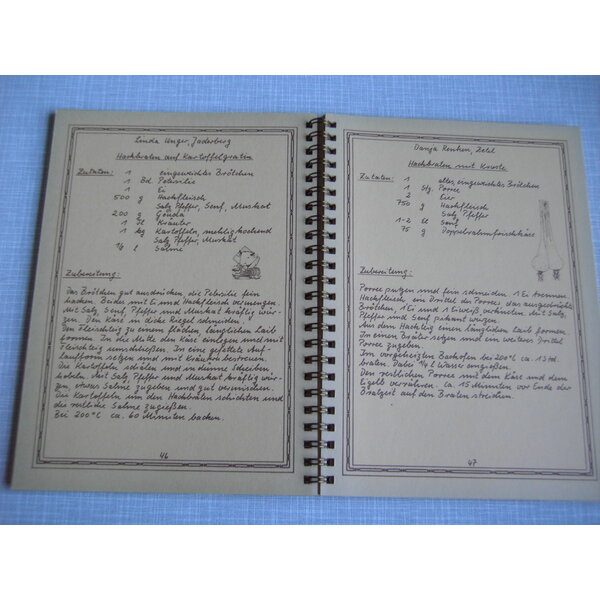 Linda Unger, Jaderberg
Hackbraten auf Kartoffelgratin
Zutaten: 1 eingeweichtes Brötchen
1 Bd. Petersilie
1 Ei
500 g Hackfleisch
Salz Pfeffer, Senf, Muskat
200 g Gouda
1 El Kräuter
1 kg Kartoffeln, mehlig kochend
Salz Pfeffer, Muskat
1/4 l Sahne
Zubereitung:
Das Brötchen gut ausdrücken, die Petersilie fein
hacken. Beides mit Ei und Hackfleisch vermengen.
Mit Salz, Senf Pfeffer und Muskat kräftig wür-
zen. Den Käse in dicke Riegel schneiden.
Den Fleischteig zu einem flachen, länglichen Laib
formen. In die Mitte den Käse einlegen und mit
Fleischteig umschließen. In eine gefettete Auf-
laufform setzen und mit Kräutern bestreuen.
Die Kartoffeln schälen und in dünne Scheiben
hobeln. Mit Salz, Pfeffer und Muskat kräftig wür-
zen, etwas Sahne zugeben und gut vermischen.
Die Kartoffeln um den Hackbraten schichten und
die restliche Sahne zugießen.
Bei 200°C ca. 60 Minuten backen.
46
Danja Renken, Zetel
Hackbraten mit Kruste
Zutaten: 1 altes, eingeweichtes Brötchen
1 Stg. Porree
2 Eier
750 g Hackfleisch
Salz Pfeffer
1-2 El Senf
75 g Doppelrahmfrischkäse
Zubereitung:
Porree putzen und fein schneiden. 1 Ei trennen.
Hackfleisch, ein Drittel des Porrees, das ausgedrückte
Brötchen, 1 Ei und 1 Eiweiß verkneten. Mit Salz,
Pfeffer und Senf pikant würzen.
Aus dem Hackteig einen länglichen Laib formen.
In einen Bräter setzen und ein weiteres Drittel
Porree zugeben.
Im vorgeheizten Backofen bei 200°C ca. 1 Std.
braten. Dabei 1/4 l Wasser angießen.
Den restlichen Porree mit dem Käse und dem
Eigelb verrühren. ca. 15 Minuten vor Ende der
Bratzeit auf den Braten streichen.
47